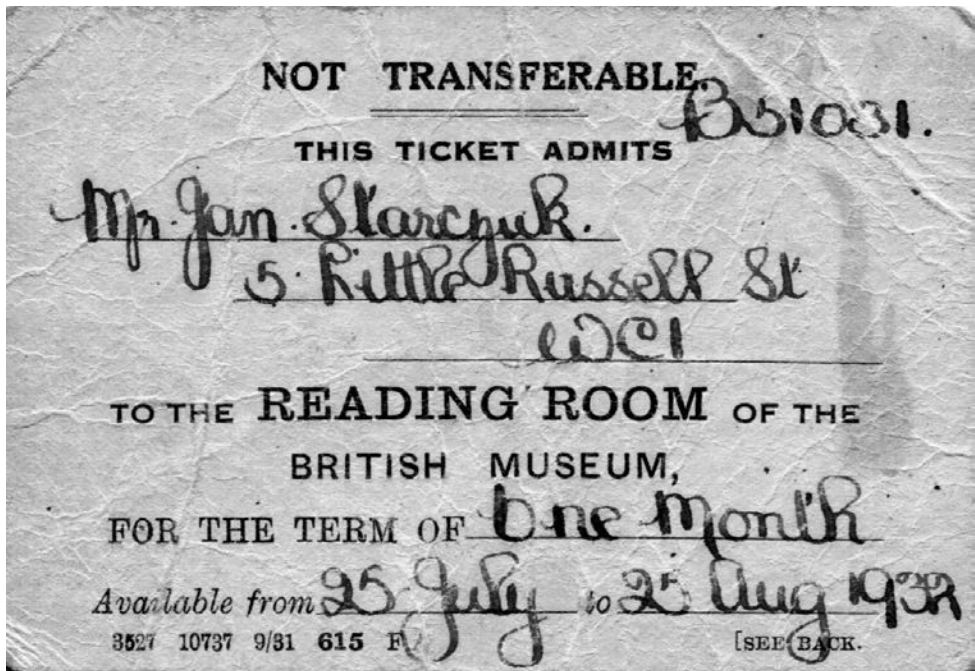 NOT TRANSFERABLE.
B51031.
THIS TICKET ADMITS
Mr. Jan. Starczuk.
5 Little Russell St
WC1
TO THE READING ROOM OF THE
BRITISH MUSEUM,
FOR THE TERM OF One Month
Available from 25 July to 25 Aug 1932
3527 10737 9/31 615 F
[SEE BACK.